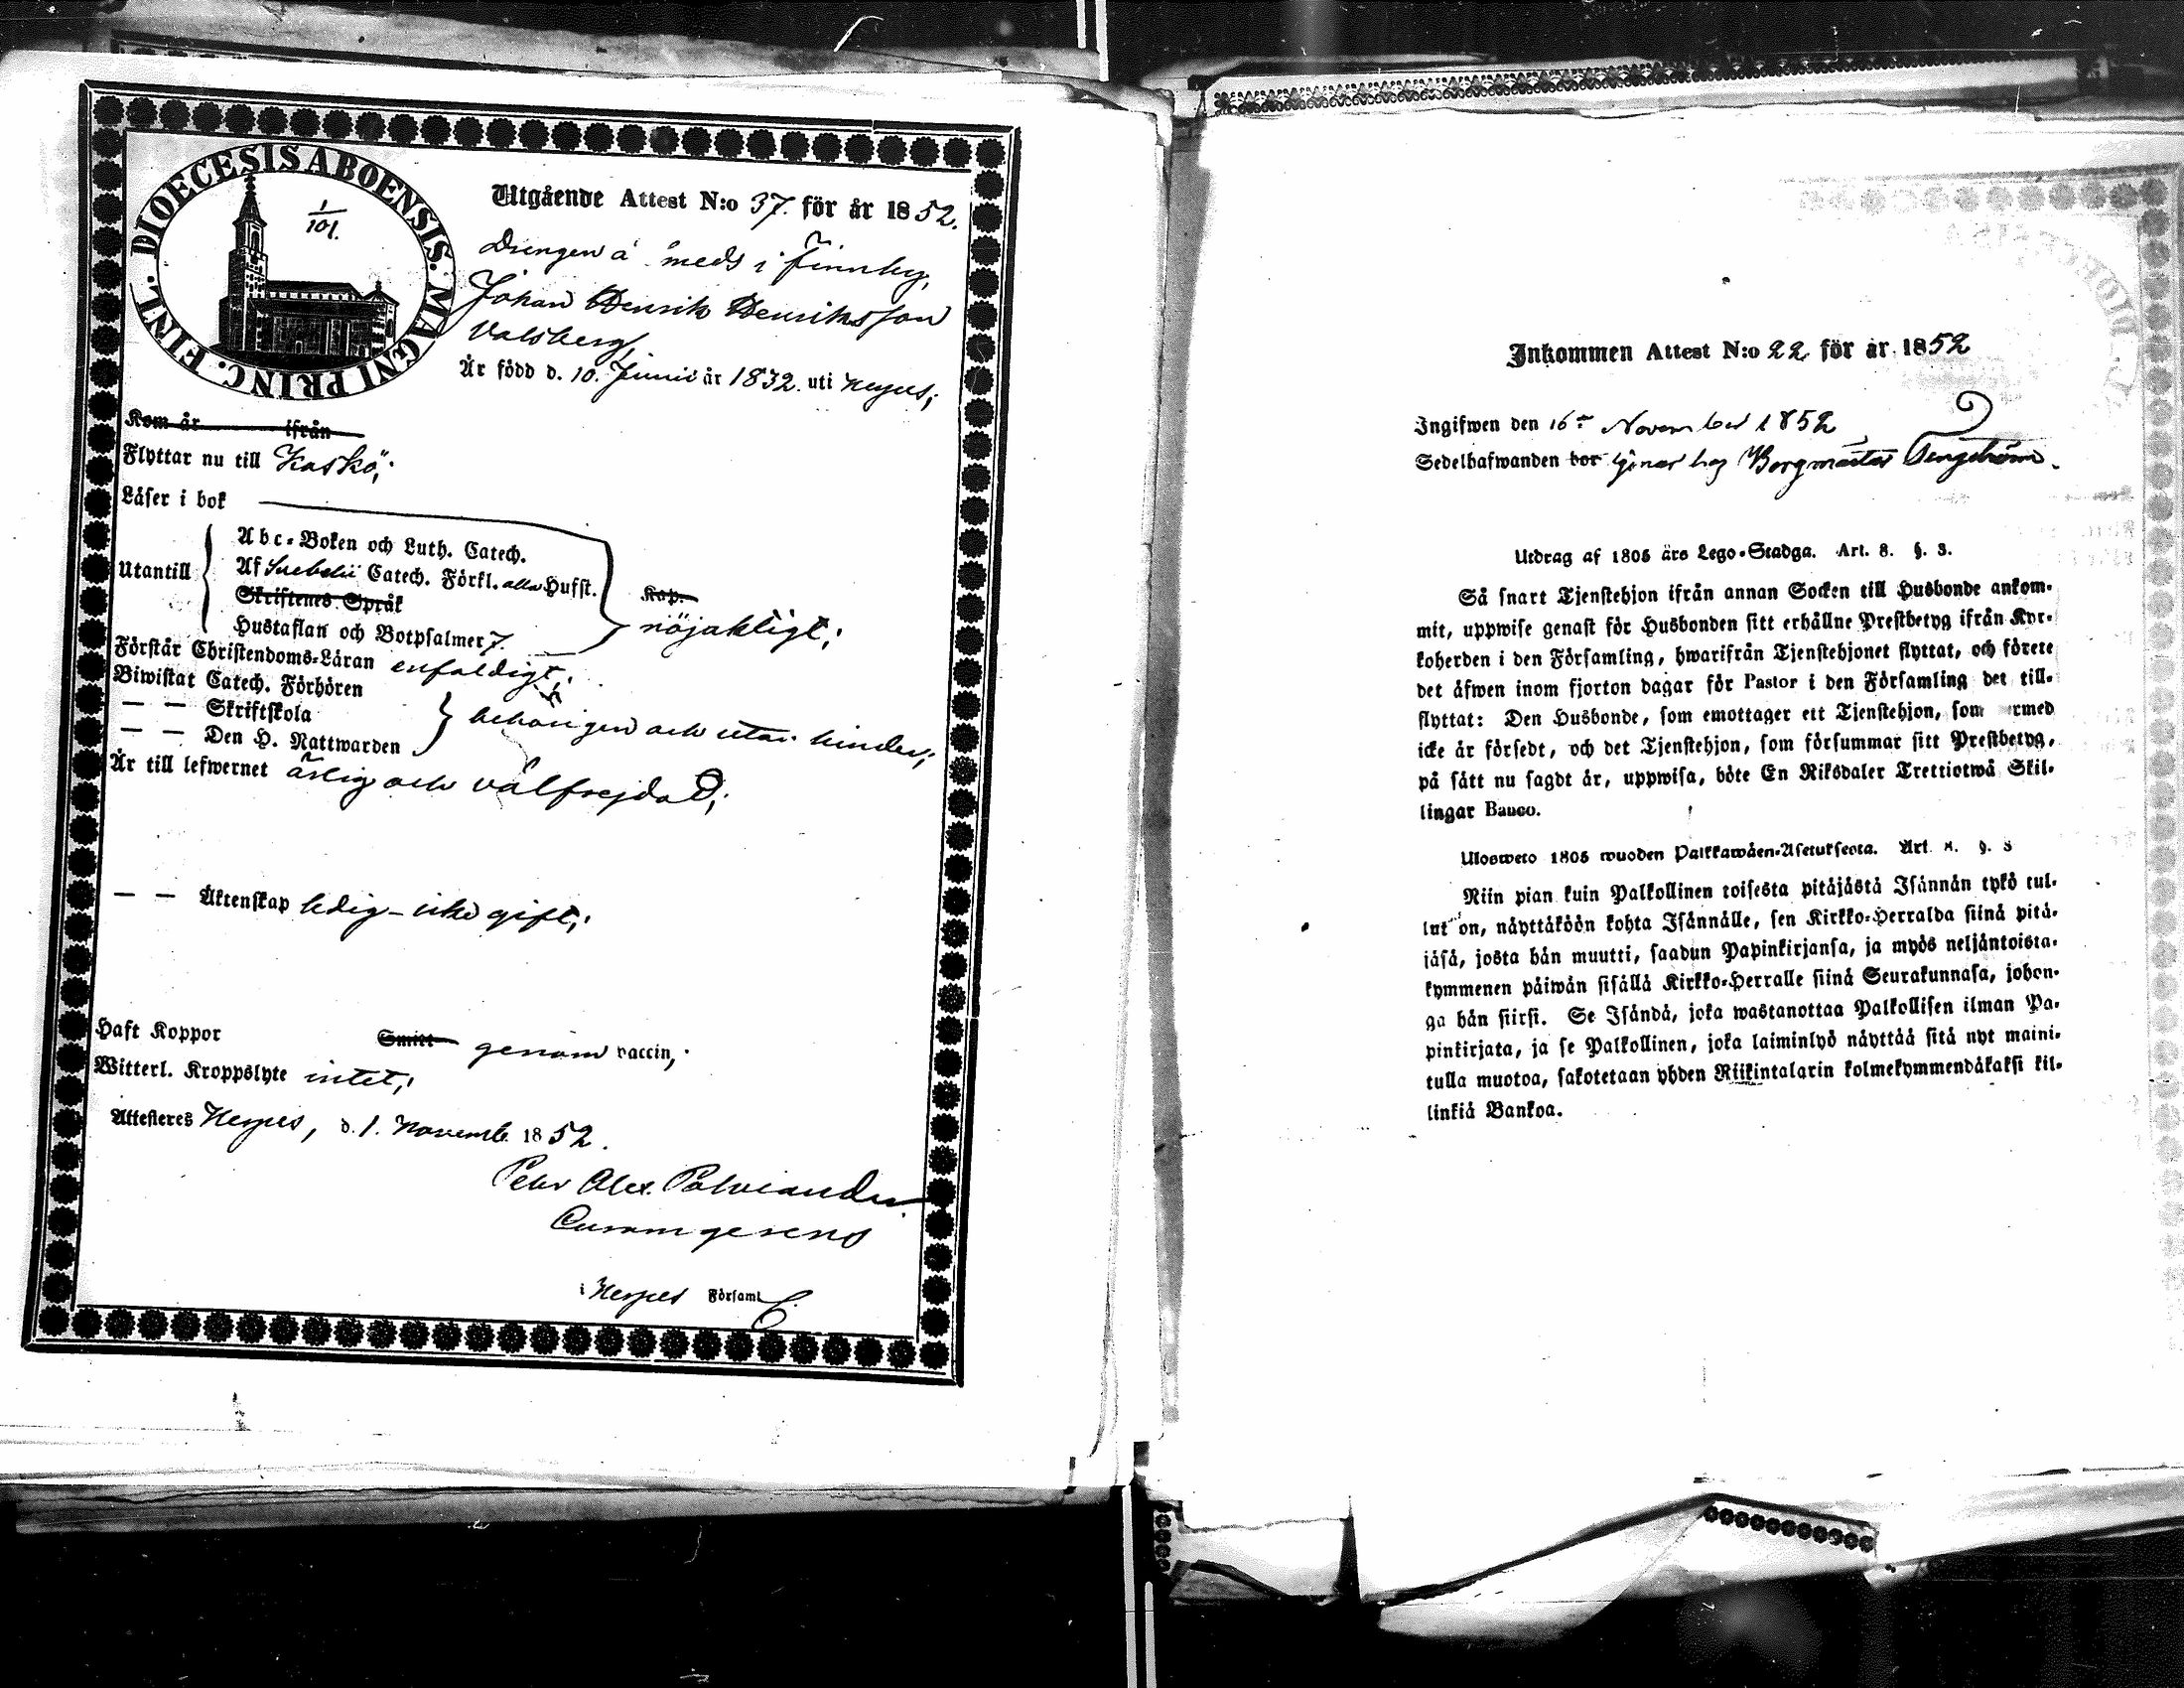 DIOECESIS ABOENSIS. MAGNI PRINC. FINL.
1/101.
Utgående Attest N:o 37. för år 1852.
Drengen å meds i Finnby,
Johan Henrik Henriksson
Valsberg,
År född d. 10. Junii år 1832. uti Nerpes;
Kom år ifrån
Flyttar nu till Kaskö;
Läser i bok
Utantill
Abc-Boken och Luth. Catech.
Af Svebelii Catech. Förkl. alla Hufst.
Skriftenes Språk
Hustaflan och Botpsalmer 7.
Kap.
nöjaktigt;
Förstår Christendoms-Läran enfaldigt;
Biwistat Catech. Förhören
— — Skriftskola
— — Den H. Nattwarden
behörigen och utan hinder;
Är till lefwernet ärlig och välfrejdad;
— — Äktenskap ledig – icke gift;
Haft Koppor Smitt genom vaccin;
Witterl. Kroppslyte intet;
Attesteres Nerpes, d. 1. Novemb. 1852.
Petter Alex. Polviander
Curam gerens
i Nerpes Församl
Inkommen Attest N:o 22 för år 1852
Ingifwen den 16 November 1852
Sedelhafwanden bor tjenar hos Borgmästar Tengström.
Utdrag af 1805 års Lego-Stadga. Art. 8. §. 3.
Så snart Tjenstehjon ifrån annan Socken till Husbonde ankom-
mit, uppwise genast för Husbonden sitt erhållne Prestbetyg ifrån Kyr-
koherden i den Församling, hwarifrån Tjenstehjonet flyttat, och förete
det äfwen inom fjorton dagar för Pastor i den Församling det till-
flyttat: Den Husbonde, som emottager ett Tjenstehjon, som ermed
icke är försedt, och det Tjenstehjon, som försummar sitt Prestbetyg,
på sätt nu sagdt är, uppwisa, böte En Riksdaler Trettiotwå Skil-
lingar Banco.
Ulosweto 1805 wuoden Palkkawäen-Asetuksesta. Art. 8. §. 3
Niin pian kuin Palkollinen toisesta pitäjästä Isännän tykö tul-
lut on, näyttäköön kohta Isännälle, sen Kirkko-Herralda siinä pitä-
jäsä, josta hän muutti, saadun Papinkirjansa, ja myös neljäntoista-
kymmenen päiwän sisällä Kirkko-Herralle siinä Seurakunnasa, johon-
ga hän siirsi. Se Isändä, joka wastanottaa Palkollisen ilman Pa-
pinkirjata, ja se Palkollinen, joka laiminlyö näyttää sitä nyt maini-
tulla muotoa, sakotetaan yhden Riikintalarin kolmekymmendäkaksi kil-
linkiä Bankoa.